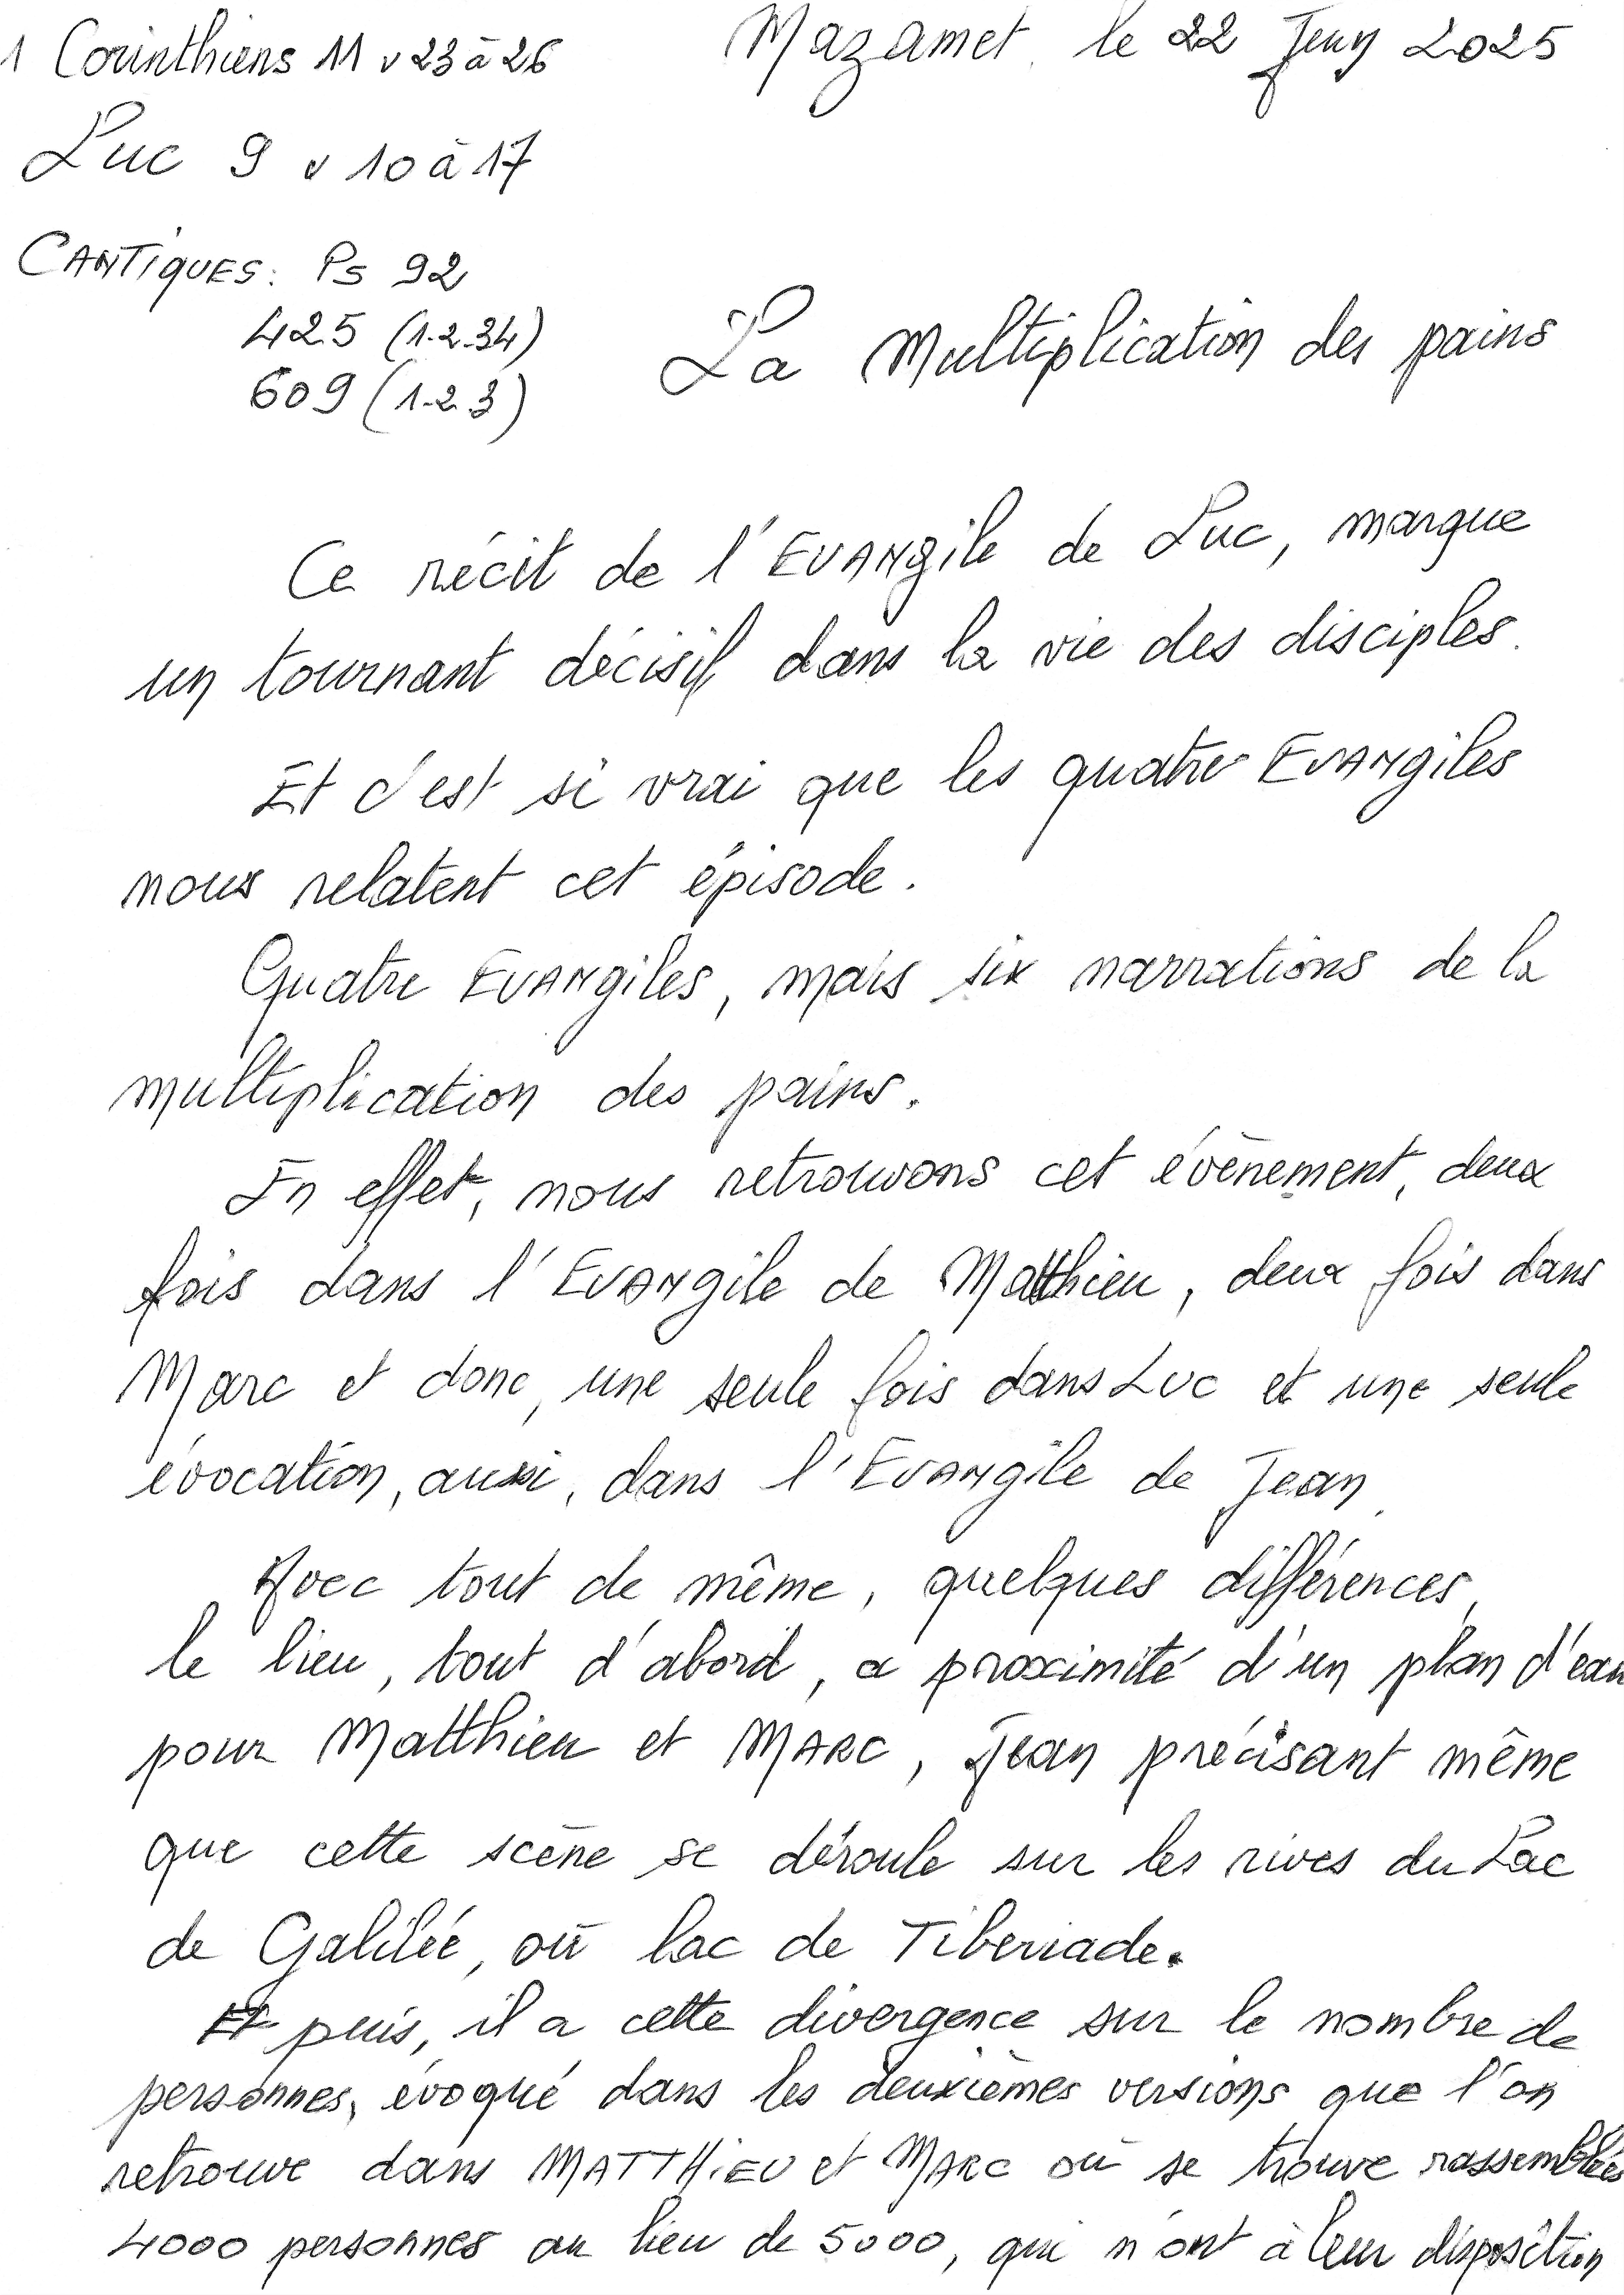 1 Corinthiens 11 v 23 à 26
Mazamet le 22 Juin 2025
Luc 9 v 10 à 17
CANTIQUES: Ps 92
425 (1.2.34)
609 (1-2.3)
La Multiplication des pains
Ce récit de l'EVANgile de Luc, marque
un tournant décisif dans la vie des disciples.
Et c'est si vrai que les quatre EVANgiles
nous relatent cet épisode.
Quatre EVANgiles, mais six narrations de la
multiplication des pains.
En effet, nous retrouvons cet évènement, deux
fois dans l'EVANgile de Matthieu, deux fois dans
Marc et donc, une seule fois dans Luc et une seule
évocation, aussi, dans l'EVANgile de Jean.
Avec tout de même, quelques différences,
le lieu, tout d'abord, a proximité d'un plan d'eau
pour Matthieu et MARC, Jean précisant même
que cette scène se déroule sur les rives du Lac
de Galilée, où lac de Tiberiade.
Et puis, il a cette divergence sur le nombre de
personnes, évoqué dans les deuxièmes versions que l'on
retrouve dans MATTHIEU et MARC où se trouve rassemblées
4000 personnes au lieu de 5000, qui n'ont à leur disposition